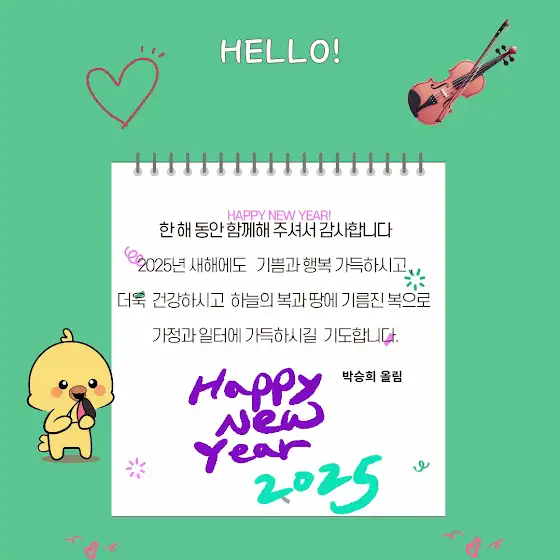 HELLO!
HAPPY NEW YEAR!
한 해 동안 함께해 주셔서 감사합니다
2025년 새해에도 기쁨과 행복 가득하시고
더욱 건강하시고 하늘의 복과 땅에 기름진 복으로
가정과 일터에 가득하시길 기도합니다.
박승희 올림
Happy
New
Year
2025